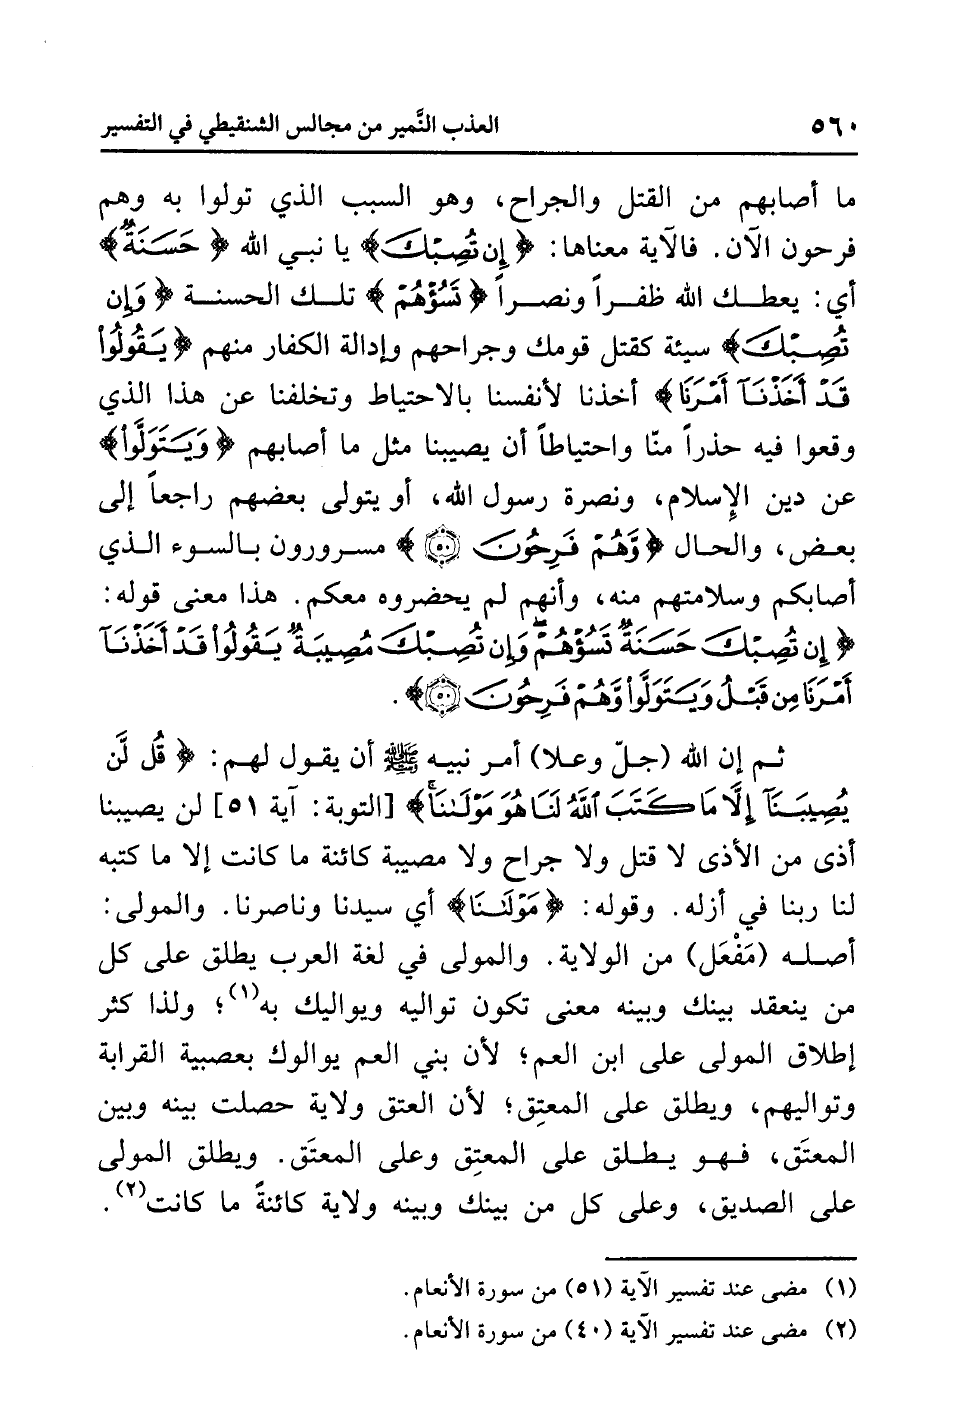 ٥٦٠ العذب النَّمير من مجالس الشنقيطي في التفسير
ما أصابهم من القتل والجراح، وهو السبب الذي تولوا به وهم
فرحون الآن. فالآية معناها: ﴿إِن تُصِبْكَ﴾ يا نبي الله ﴿حَسَنَةٌ﴾
أي: يعطك الله ظفراً ونصراً ﴿تَسُؤْهُمْ﴾ تلك الحسنة ﴿وَإِن
تُصِبْكَ﴾ سيئة كقتل قومك وجراحهم وإدالة الكفار منهم ﴿يَقُولُواْ
قَدْ أَخَذْنَآ أَمْرَنَا﴾ أخذنا لأنفسنا بالاحتياط وتخلفنا عن هذا الذي
وقعوا فيه حذراً منّا واحتياطاً أن يصيبنا مثل ما أصابهم ﴿وَيَتَوَلَّواْ﴾
عن دين الإسلام، ونصرة رسول الله، أو يتولى بعضهم راجعاً إلى
بعض، والحال ﴿وَّهُمْ فَرِحُونَ ۝٥٠﴾ مسرورون بالسوء الذي
أصابكم وسلامتهم منه، وأنهم لم يحضروه معكم. هذا معنى قوله:
﴿إِن تُصِبْكَ حَسَنَةٌ تَسُؤْهُمْۖ وَإِن تُصِبْكَ مُصِيبَةٌ يَقُولُواْ قَدْ أَخَذْنَآ
أَمْرَنَا مِن قَبْلُ وَيَتَوَلَّواْ وَّهُمْ فَرِحُونَ ۝٥٠﴾.
ثم إن الله (جلّ وعلا) أمر نبيه ﷺ أن يقول لهم: ﴿قُل لَّن
يُصِيبَنَآ إِلَّا مَا كَتَبَ ٱللَّهُ لَنَا هُوَ مَوْلَىٰنَاۚ﴾ [التوبة: آية ٥١] لن يصيبنا
أذى من الأذى لا قتل ولا جراح ولا مصيبة كائنة ما كانت إلا ما كتبه
لنا ربنا في أزله. وقوله: ﴿مَوْلَىٰنَا﴾ أي سيدنا وناصرنا. والمولى:
أصله (مَفْعَل) من الولاية. والمولى في لغة العرب يطلق على كل
من ينعقد بينك وبينه معنى تكون تواليه ويواليك به(١)؛ ولذا كثر
إطلاق المولى على ابن العم؛ لأن بني العم يوالوك بعصبية القرابة
وتواليهم، ويطلق على المعتِق؛ لأن العتق ولاية حصلت بينه وبين
المعتَق، فهو يطلق على المعتِق وعلى المعتَق. ويطلق المولى
على الصديق، وعلى كل من بينك وبينه ولاية كائنةً ما كانت(٢).
(١) مضى عند تفسير الآية (٥١) من سورة الأنعام.
(٢) مضى عند تفسير الآية (٤٠) من سورة الأنعام.